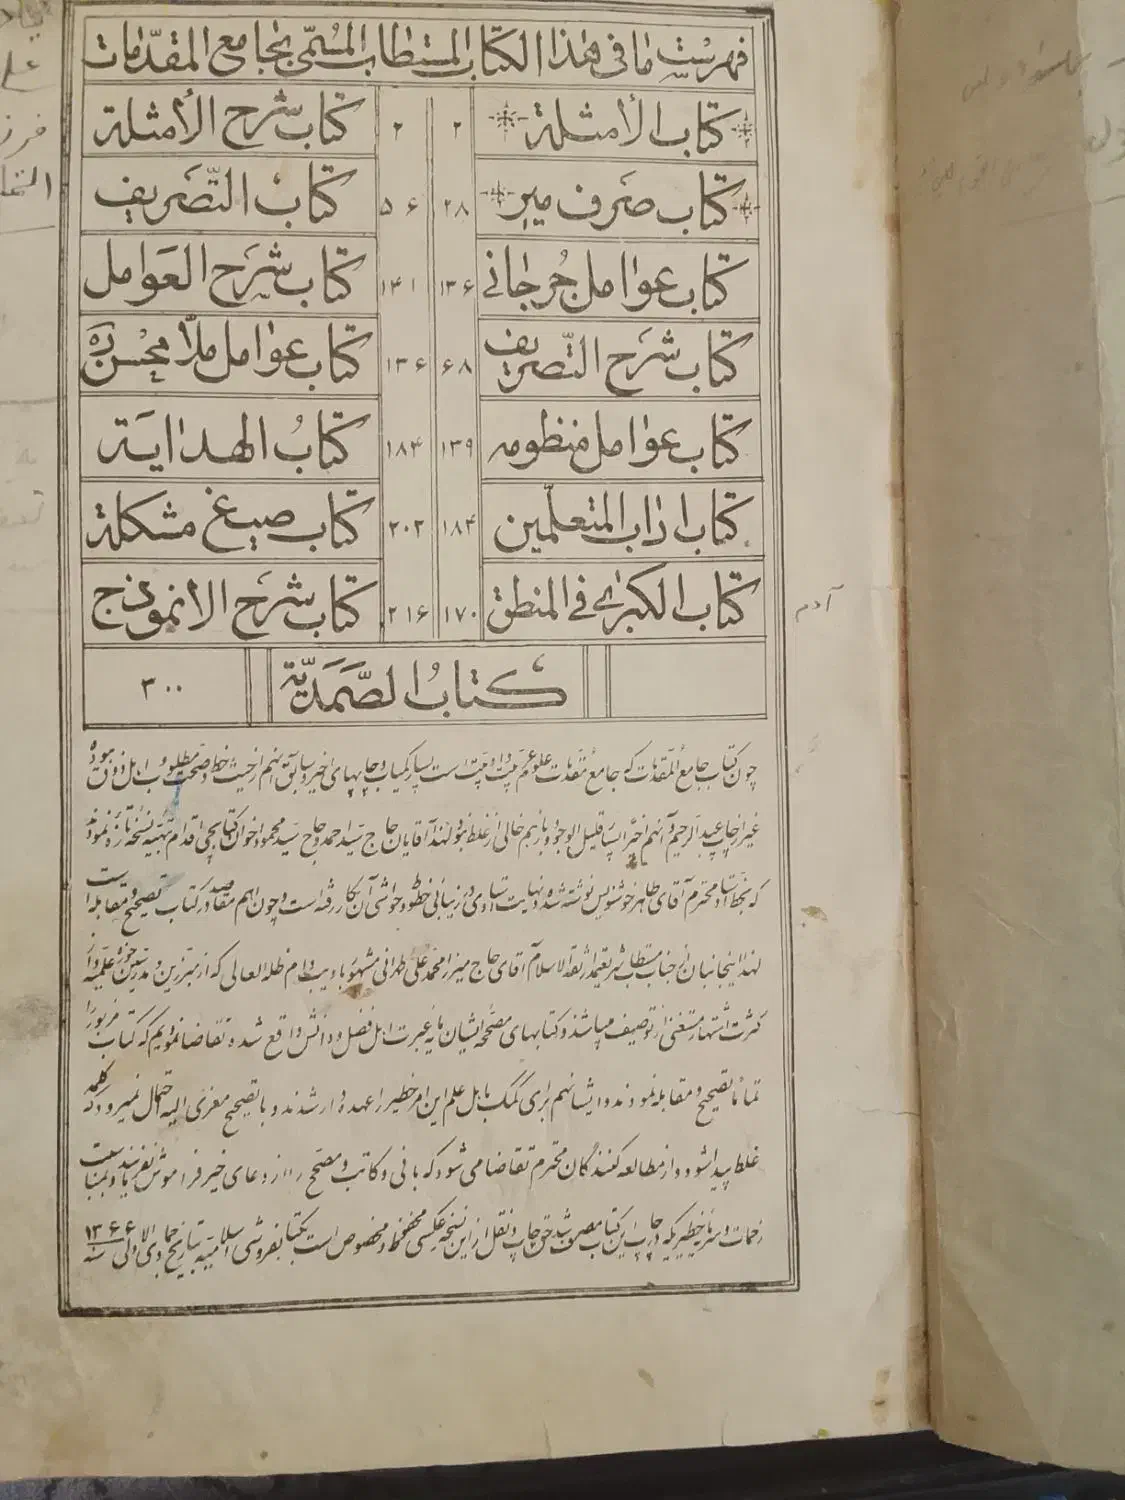 فهرست ما فی هذا الکتاب المستطاب المسمّی بجامع المقدّمات
کتاب الأمثلة ۲ ۲ کتاب شرح الأمثلة
کتاب صرف میر ۲۸ ۵۶ کتاب التّصریف
کتاب عوامل جرجانی ۱۳۶ ۱۴۱ کتاب شرح العوامل
کتاب شرح التّصریف ۶۸ ۱۳۶ کتاب عوامل ملّا محسن ره
کتاب عوامل منظومه ۱۳۹ ۱۸۴ کتاب الهدایة
کتاب اداب المتعلّمین ۱۸۴ ۲۰۲ کتاب صیغ مشکلة
کتاب الکبری فی المنطق ۱۷۰ ۲۱۶ کتاب شرح الانموذج
کتاب الصّمدیّة ۳۰۰
چون کتاب جامع المقدمات که جامع مقدمات علوم عربیت و ادبیت است بسیار کمیاب و چاپهای اخیر و سابق آنهم از حیث خط و صحت مطلوب اهل ذوق نبوده
غیر از چاپ عبد الرحیم و آنهم اخیرا بسیار قلیل الوجود و بازهم خالی از غلط نبود لهذا آقایان حاج سید احمد و حاج سید محمود اخوان کتابچی اقدام بتهیه نسخه تازه نمودند
که بخط استاد محترم آقای طاهر خوشنویس نوشته شده و نهایت استادی در زیبائی خطوط و حواشی آن بکار رفته است و چون اهم مقاصد در کتاب تصحیح و مقابله است
لهذا اینجانبان از جناب مستطاب شریعتمدار ثقة الاسلام آقای حاج میرزا محمد علی طهرانی مشهور بادیب دام ظله العالی که از مبرزین و مدرسین حوزه علمیه و از
کثرت اشتهار مستغنی از توصیف میباشند و کتابهای مصححه ایشان مایه عبرت اهل فضل و دانش واقع شده تقاضا نمودیم که کتاب مزبور را
تماما تصحیح و مقابله نمودند و ایشانهم برای کمک باهل علم این امر خطیر را عهده دار شدند و با تصحیح معزی الیه احتمال نمیرود که کلمه
غلط پیدا شود و از مطالعه کنندگان محترم تقاضا می شود که بانی و کاتب و مصحح را از دعای خیر فراموش نفرمایند و بمناسبت
زحمات و سرمایه خطیریکه در چاپ این کتاب مصرف شد حق چاپ و نقل از این نسخه عکسی محفوظ و مخصوص است بکتابفروشی اسلامیه بتاریخ جمادی الاولی سنه ۱۳۶۶
آدم